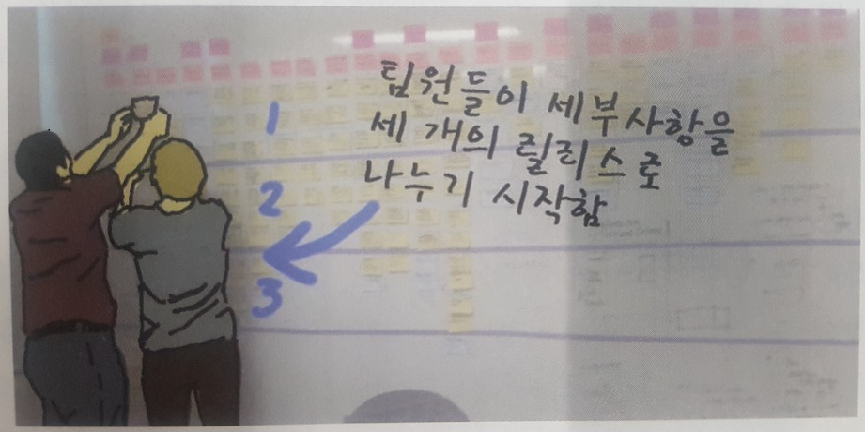 팀원들이 세부사항을
세 개의 릴리스로
나누기 시작함
1
2
3